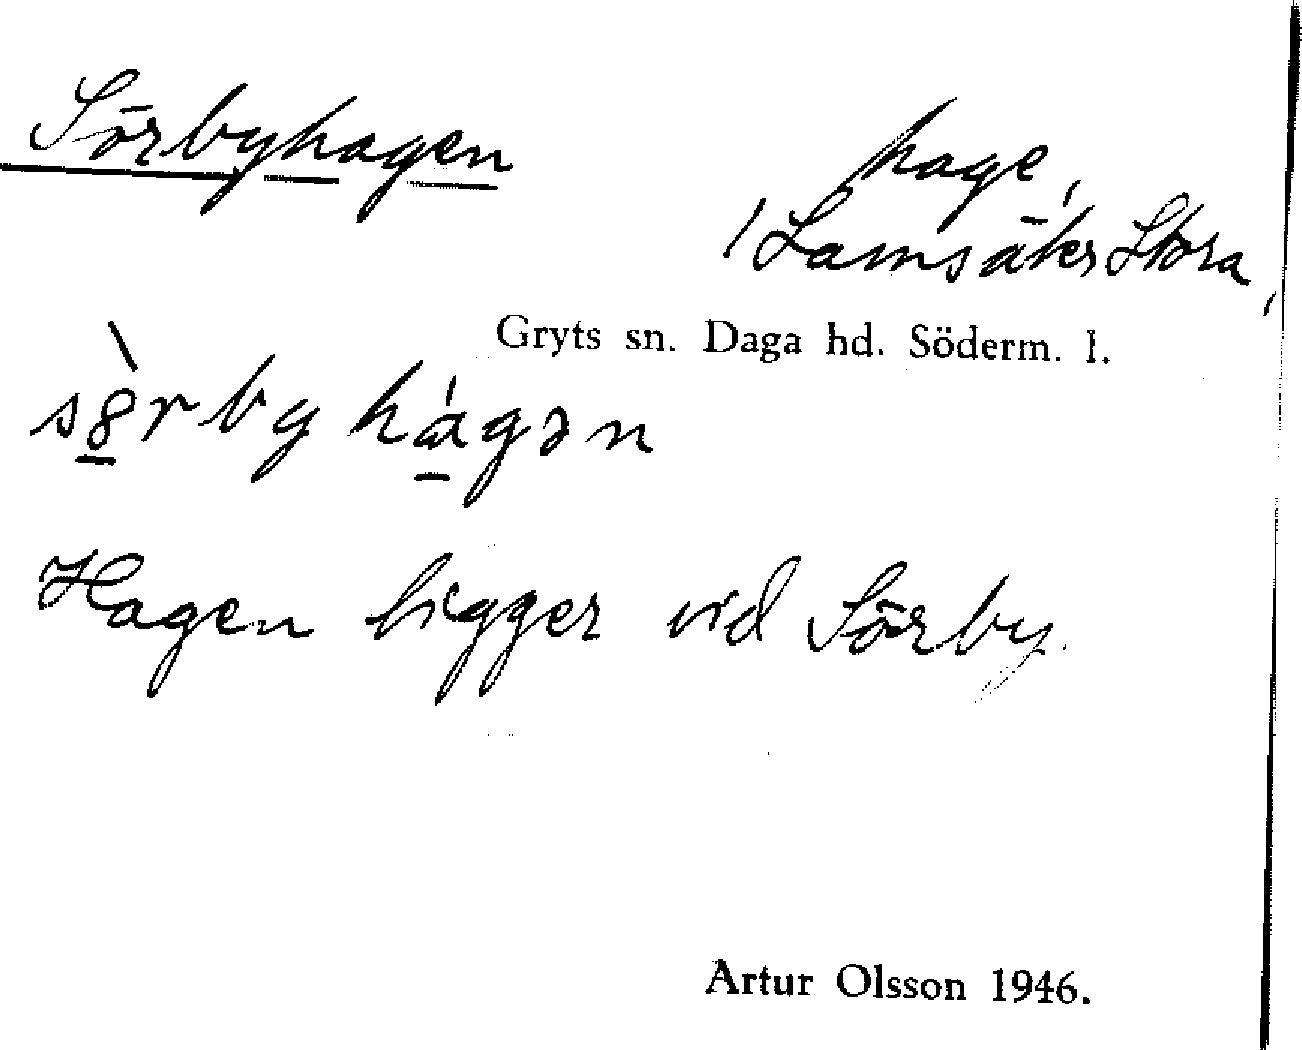 Sörbyhagen
hage,
/ Lamsäker Stora,
Gryts sn. Daga hd. Söderm. l.
sȣ̀rby hágən
Hagen ligger vid Sörby.
Artur Olsson 1946.